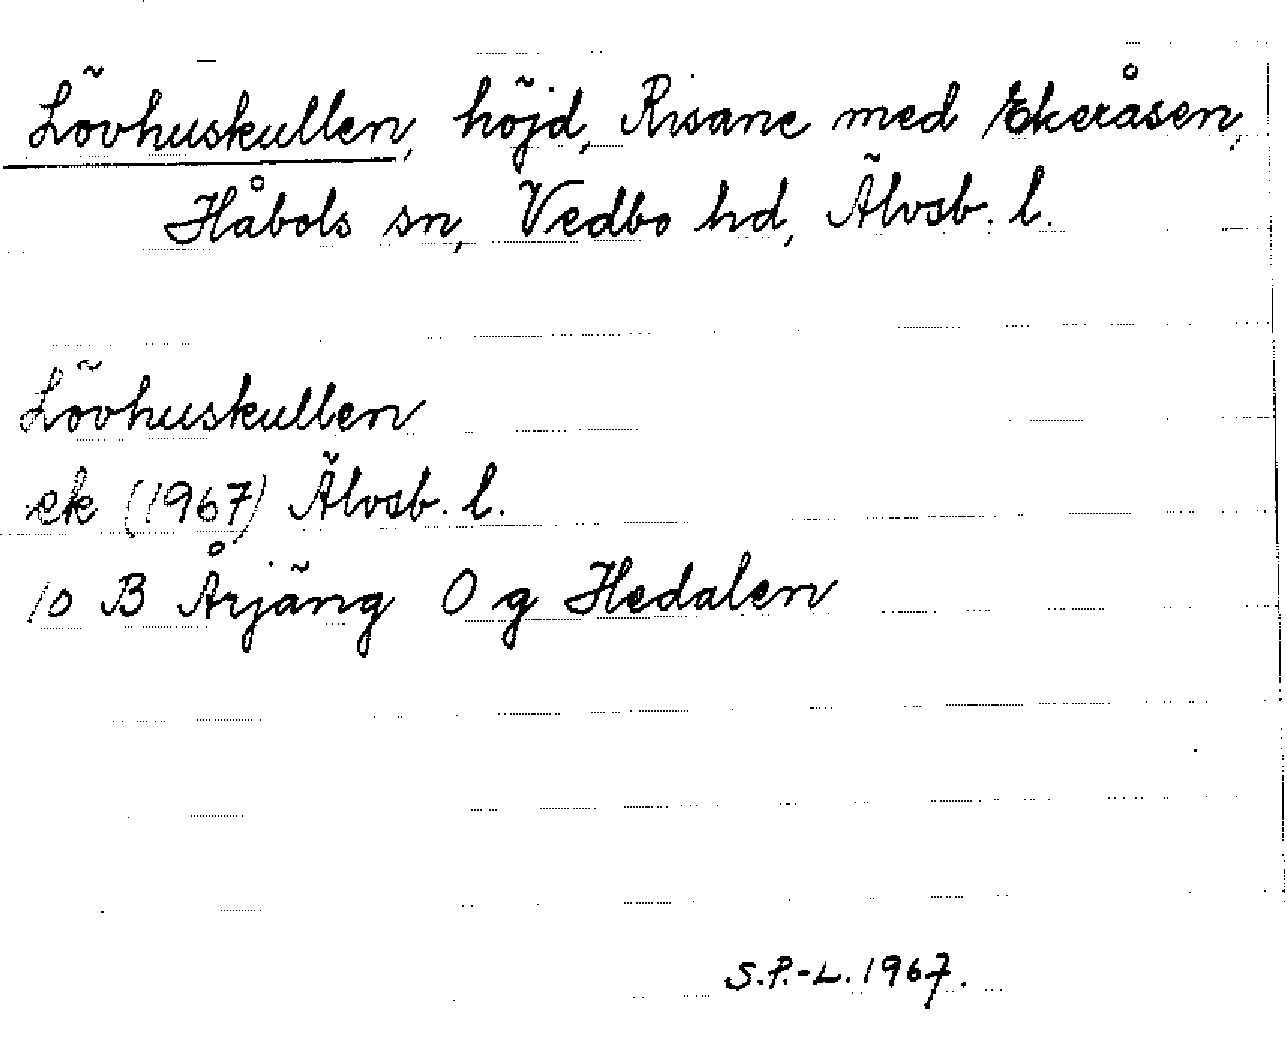 Lövhuskullen, höjd, Risane med Ekeråsen,
Håbols sn, Vedbo hd, Älvsb. l.
Lövhuskullen
ek (1967) Älvsb. l.
10 B Årjäng 0 g Hedalen
S.P.-L. 1967.